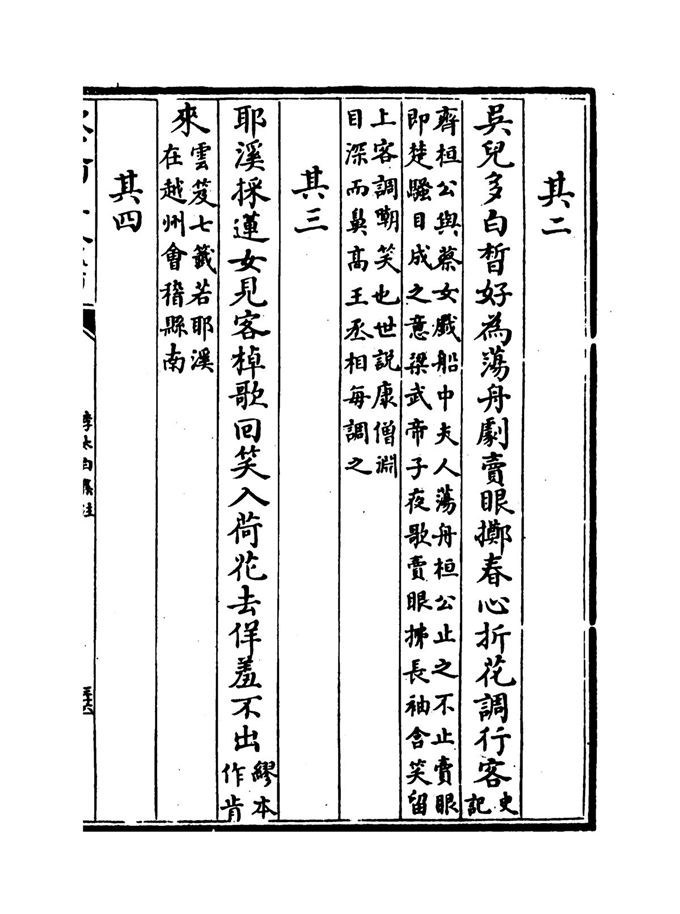 其二
吳兒多白晳好為蕩舟劇賣眼擲春心折花調行客史記
齊桓公與蔡女戲船中夫人蕩舟桓公止之不止賣眼
即楚騷目成之意梁武帝子夜歌賣眼拂長袖含笑留
上客調嘲笑也世說康僧淵
目深而鼻高王丞相每調之
其三
耶溪採蓮女見客棹歌回笑入荷花去佯羞不出繆本作肯
來雲笈七籤若耶溪在越州會稽縣南
其四
李太白集注